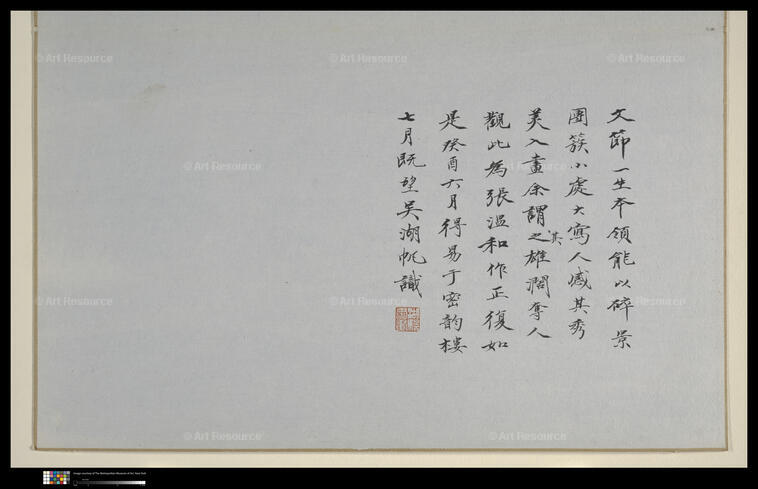 文節一生本領能以碎景
團簇小處大寫人感其秀
美入畫余謂之其雄濶奪人
觀此為張溫和作正復如
是癸酉六月得易于密韵樓
七月既望吴湖帆識
© Art Resource
© Art Resource
© Art Resource
© Art Resource
© Art Resource
© Art Resource
© Art Resource
© Art Resource
© Art Resource
© Art Resource
Image courtesy of The Metropolitan Museum of Art, New York